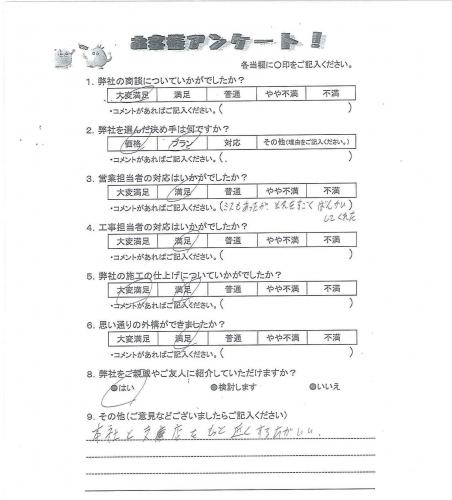 お客様アンケート！
各当欄に〇印をご記入ください。
1. 弊社の商談についていかがでしたか？
大変満足 満足 普通 やや不満 不満
・コメントがあればご記入ください。( )
2. 弊社を選んだ決め手は何ですか？
価格 プラン 対応 その他(理由をご記入ください。)
・コメントがあればご記入ください。( )
3. 営業担当者の対応はいかがでしたか？
大変満足 満足 普通 やや不満 不満
・コメントがあればご記入ください。( それをすごく ばんかい )
してくれた
4. 工事担当者の対応はいかがでしたか？
大変満足 満足 普通 やや不満 不満
・コメントがあればご記入ください。( )
5. 弊社の施工の仕上げについていかがでしたか？
大変満足 満足 普通 やや不満 不満
・コメントがあればご記入ください。( )
6. 思い通りの外構ができましたか？
大変満足 満足 普通 やや不満 不満
・コメントがあればご記入ください。( )
8. 弊社をご親戚やご友人に紹介していただけますか？
●はい ●検討します ●いいえ
9. その他(ご意見などございましたらご記入ください)
本社と支店をもっと近くする